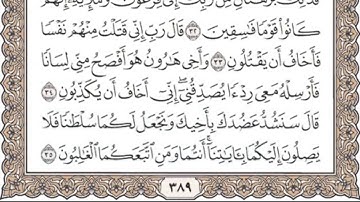 كَانُوا۟ قَوْمًا فَٰسِقِينَ ٣٢ قَالَ رَبِّ إِنِّى قَتَلْتُ مِنْهُمْ نَفْسًا
فَأَخَافُ أَن يَقْتُلُونِ ٣٣ وَأَخِى هَٰرُونُ هُوَ أَفْصَحُ مِنِّى لِسَانًا
فَأَرْسِلْهُ مَعِىَ رِدْءًا يُصَدِّقُنِىٓ إِنِّىٓ أَخَافُ أَن يُكَذِّبُونِ ٣٤
قَالَ سَنَشُدُّ عَضُدَكَ بِأَخِيكَ وَنَجْعَلُ لَكُمَا سُلْطَٰنًا فَلَا
يَصِلُونَ إِلَيْكُمَا بِـَٔايَٰتِنَآ أَنتُمَا وَمَنِ ٱتَّبَعَكُمَا ٱلْغَٰلِبُونَ ٣٥
٣٨٩